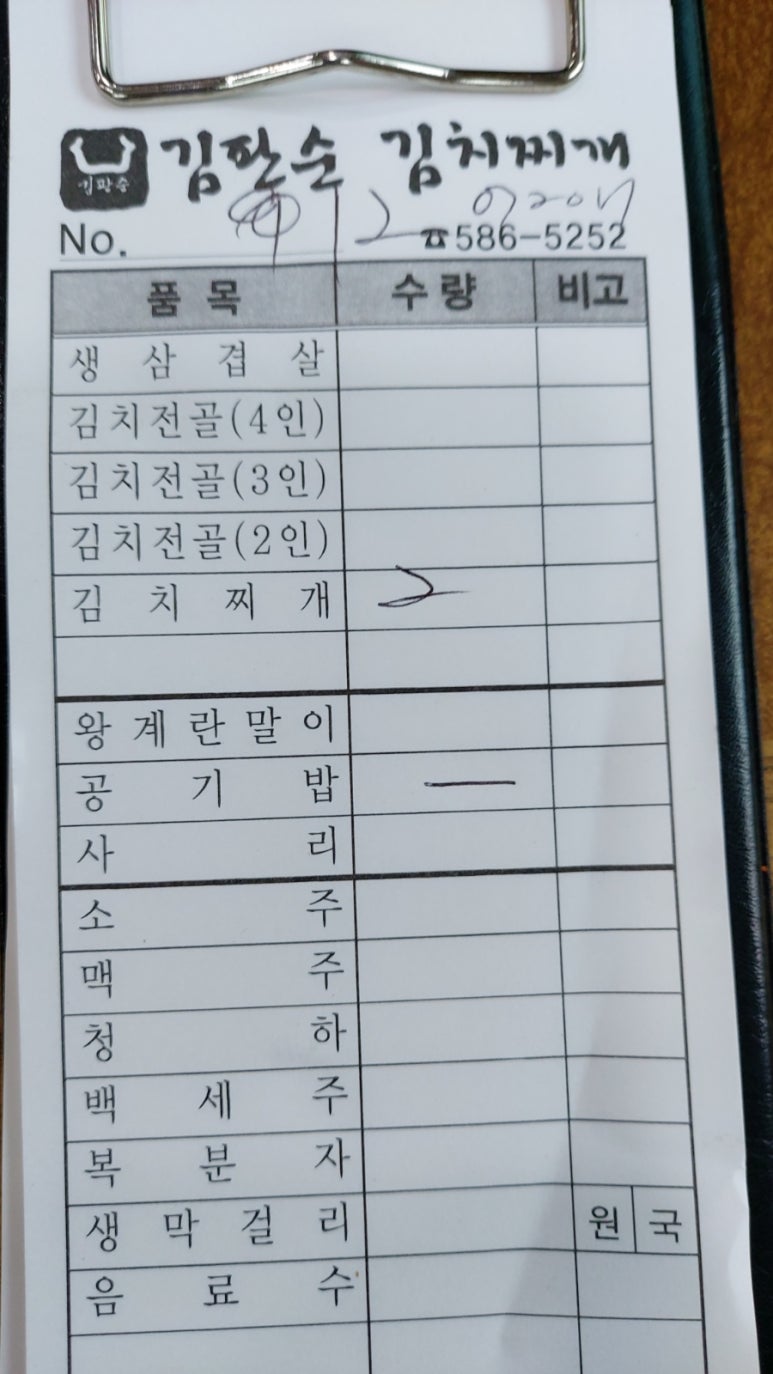 김판순 김치찌개
김판순
No. 2 ☎586-5252
품목 수량 비고
생삼겹살
김치전골(4인)
김치전골(3인)
김치전골(2인)
김치찌개 2
왕계란말이
공기밥 一
사리
소주
맥주
청하
백세주
복분자
생막걸리 원 국
음료수